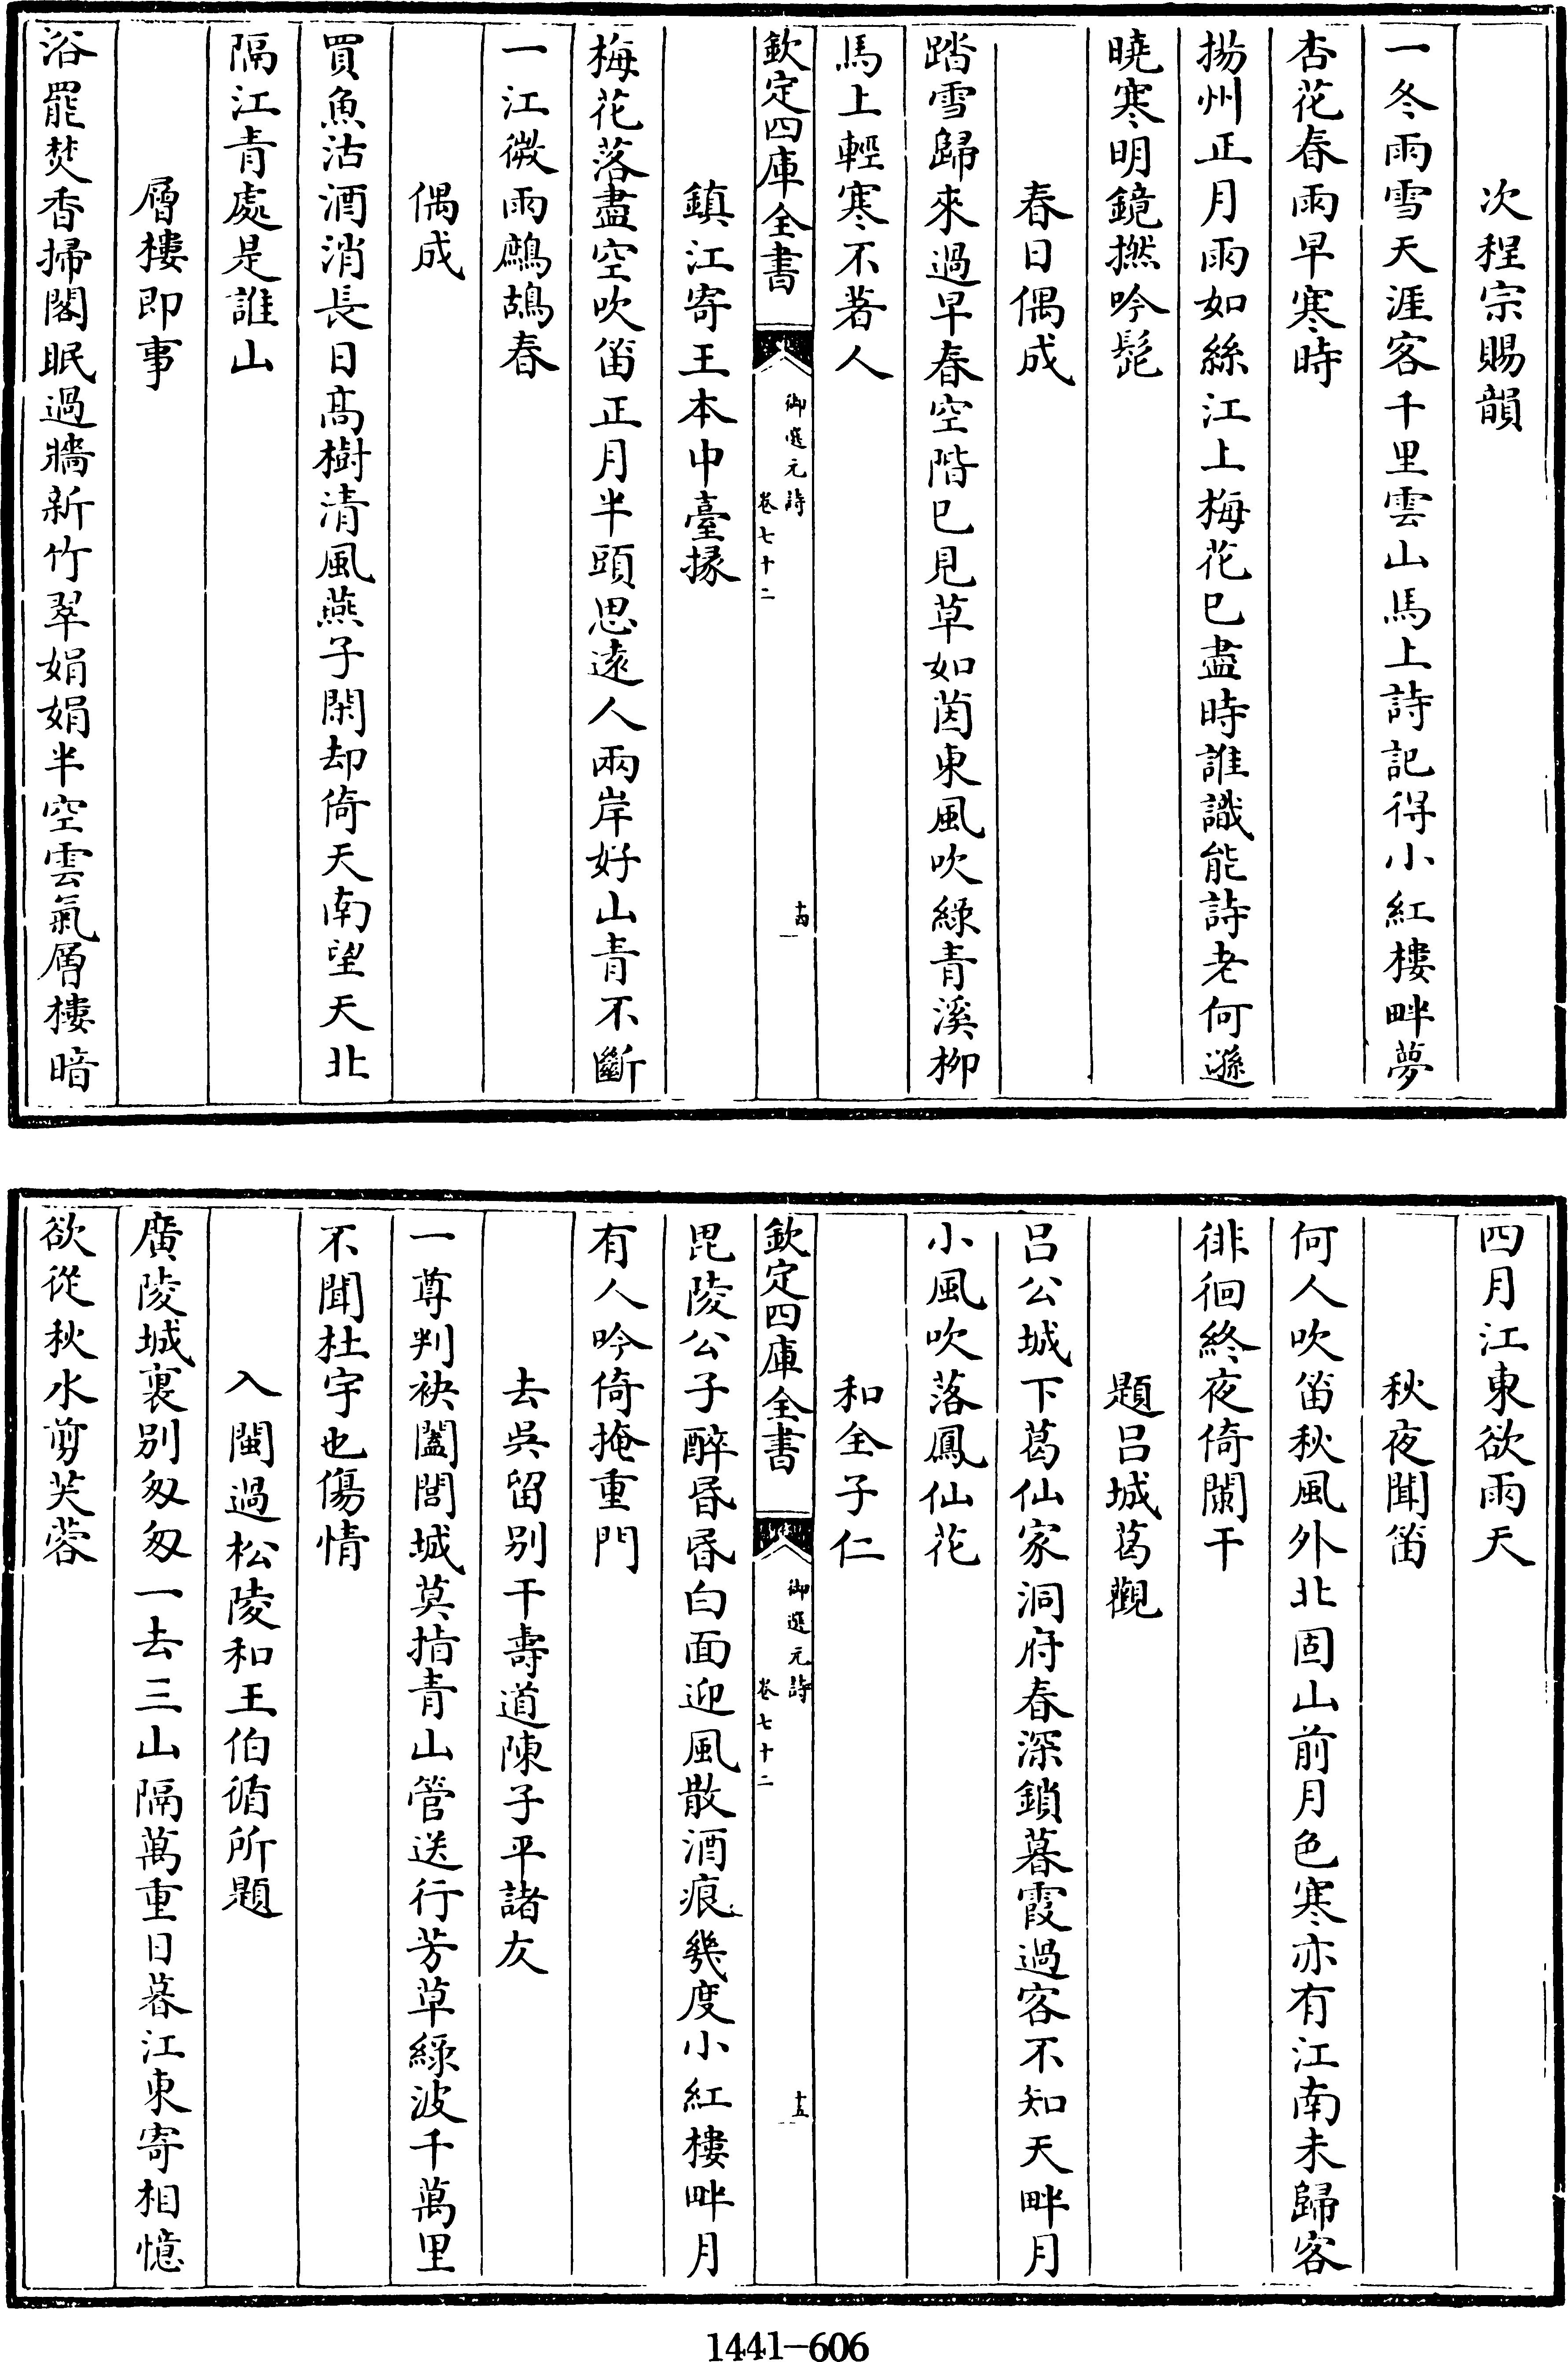 次程宗賜韻
一冬雨雪天涯客千里雲山馬上詩記得小紅樓畔夢
杏花春雨早寒時
揚州正月雨如絲江上梅花已盡時誰識能詩老何遜
曉寒明鏡撚吟髭
春日偶成
踏雪歸來過早春空階已見草如茵東風吹綠青溪柳
馬上輕寒不著人
欽定四庫全書
御選元詩
卷七十二
十四
鎮江寄王本中臺掾
梅花落盡空吹笛正月半頭思遠人兩岸好山青不斷
一江微雨鷓鴣春
偶成
買魚沽酒消長日高樹清風燕子閑却倚天南望天北
隔江青處是誰山
層樓即事
浴罷焚香掃閣眠過牆新竹翠娟娟半空雲氣層樓暗
四月江東欲雨天
秋夜聞笛
何人吹笛秋風外北固山前月色寒亦有江南未歸客
徘徊終夜倚闌干
題呂城葛觀
呂公城下葛仙家洞府春深鎖暮霞過客不知天畔月
小風吹落鳳仙花
和全子仁
欽定四庫全書
御選元詩
卷七十二
十五
毘陵公子醉昬昬白面迎風散酒痕幾度小紅樓畔月
有人吟倚掩重門
去吳留別干壽道陳子平諸友
一尊判袂闔閭城莫指青山管送行芳草綠波千萬里
不聞杜宇也傷情
入閩過松陵和王伯循所題
廣陵城裏別匆匆一去三山隔萬重日暮江東寄相憶
欲從秋水剪芙蓉
1441-606